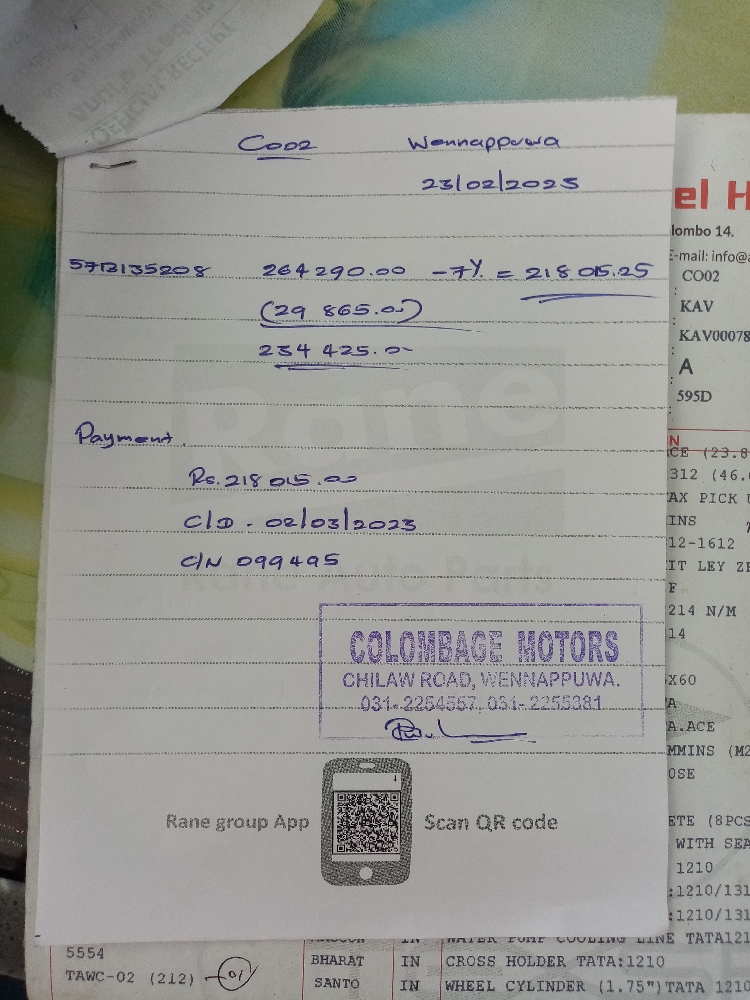 OFFICIAL RECEIPT
Coo2 Wennappuwa
23/02/2023
57B135208 264290.00 -7% = 218015.25
(29 865.00)
234 425.00
Payment.
Rs. 218 015.00
C/D - 02/03/2023
C/N 099495
Rane
Rane Auto Parts
COLOMBAGE MOTORS
CHILAW ROAD, WENNAPPUWA.
031-2254557, 031-2255381
Rane group App Scan QR code
el H
lombo 14.
E-mail: info@a
: CO02
: KAV
: KAV00078
: A
: 595D
N
CE (23.8
312 (46.
AX PICK U
INS
12-1612
IT LEY ZE
F
214 N/M
14
X60
A
A.ACE
MMINS (M2
OSE
ETE (8PCS
WITH SEA
1210
:1210/131
:1210/131
IN WATER PUMP COOLING LINE TATA121
5554
BHARAT IN CROSS HOLDER TATA:1210
TAWC-02 (212) 01 SANTO IN WHEEL CYLINDER (1.75")TATA 1210